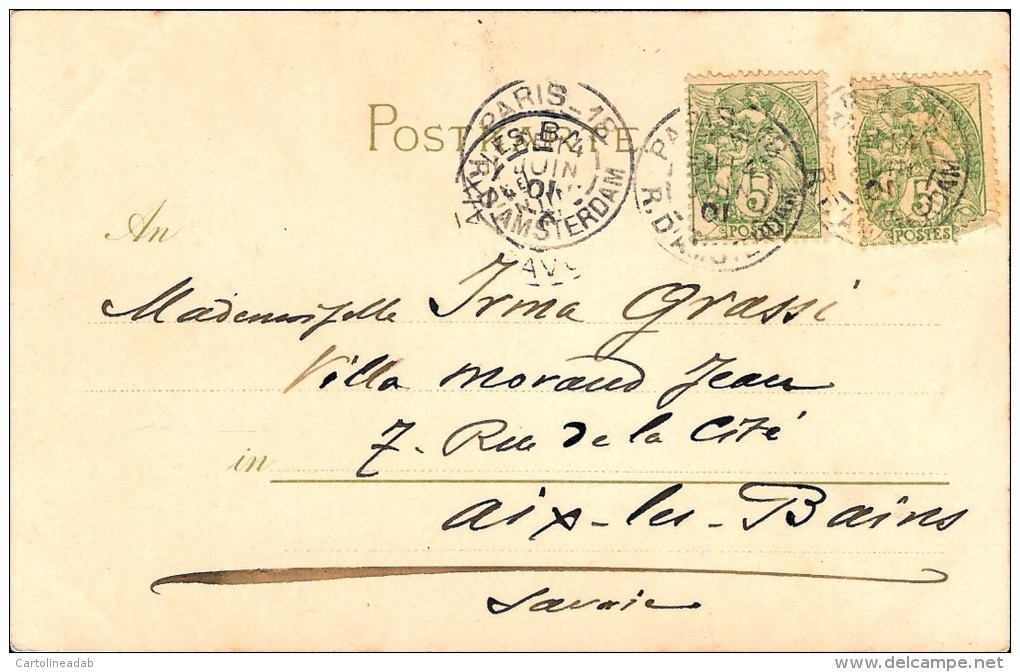 POSTKARTE
PARIS_18
R. D'AMSTERDAM
JUIN
01
PARIS
R. D'AMSTERDAM
01
5
POSTES
5
POSTES
An
Mademoiselle Irma Grassi
Villa Morand Jean
7. Rue de la Cité
in
Aix-les-Bains
Savoie
Cartolineadab
www.delcampe.net